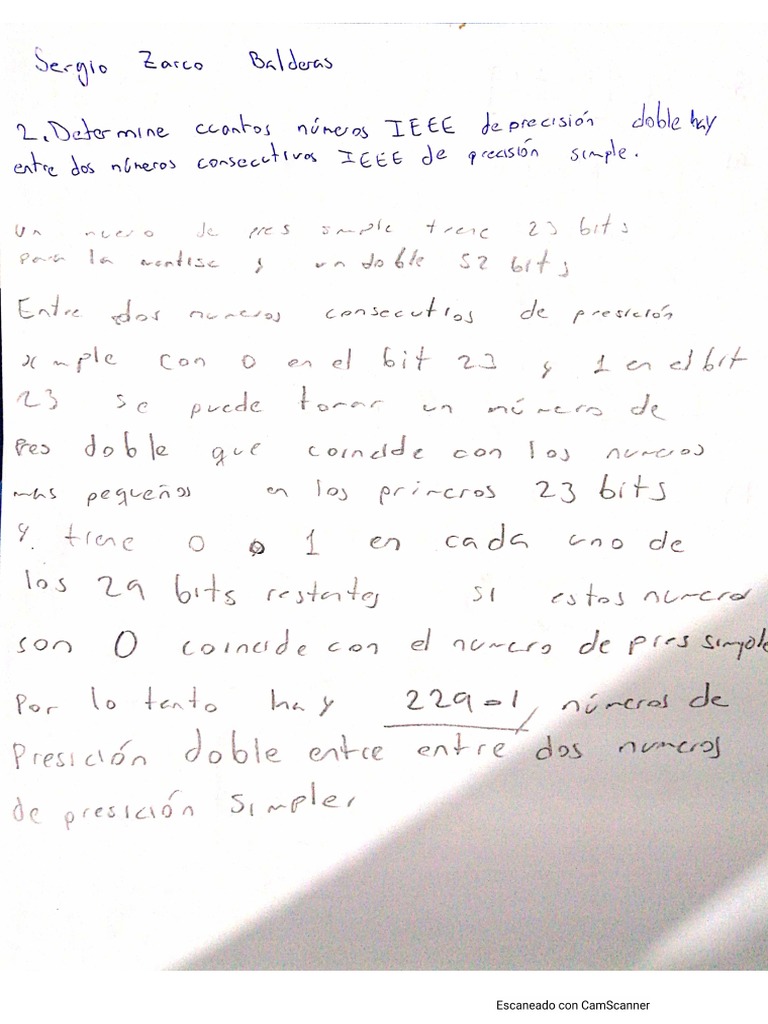 Sergio Zarco Balderas
2. Determine ccontos números IEEE de precisión doble hay
entre dos números consecutivos IEEE de precisión simple.
Un nuero de pres simple tiene 23 bits
para la mantisc y un doble 52 bits
Entre dos numeros consecutios de presición
simple con 0 en el bit 23 y 1 en el bit
23 se puede tomar un número de
Pres doble que coincide con los numeros
mas pequeños en los primeros 23 bits
y tiene 0 o 1 en cada uno de
los 29 bits restantes si estos numeros
son 0 coincide con el numero de pres simple
Por lo tanto hay 229-1, números de
Presición doble entre entre dos numeros
de presición simple.
Escaneado con CamScanner